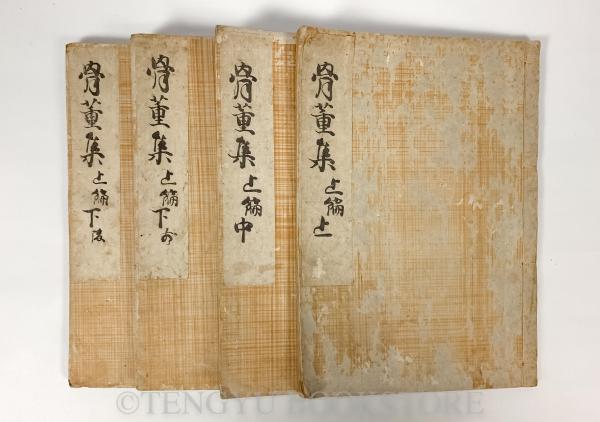 骨董集 上編上
骨董集 上編中
骨董集 上編下前
骨董集 上編下後
©TENGYU BOOKSTORE